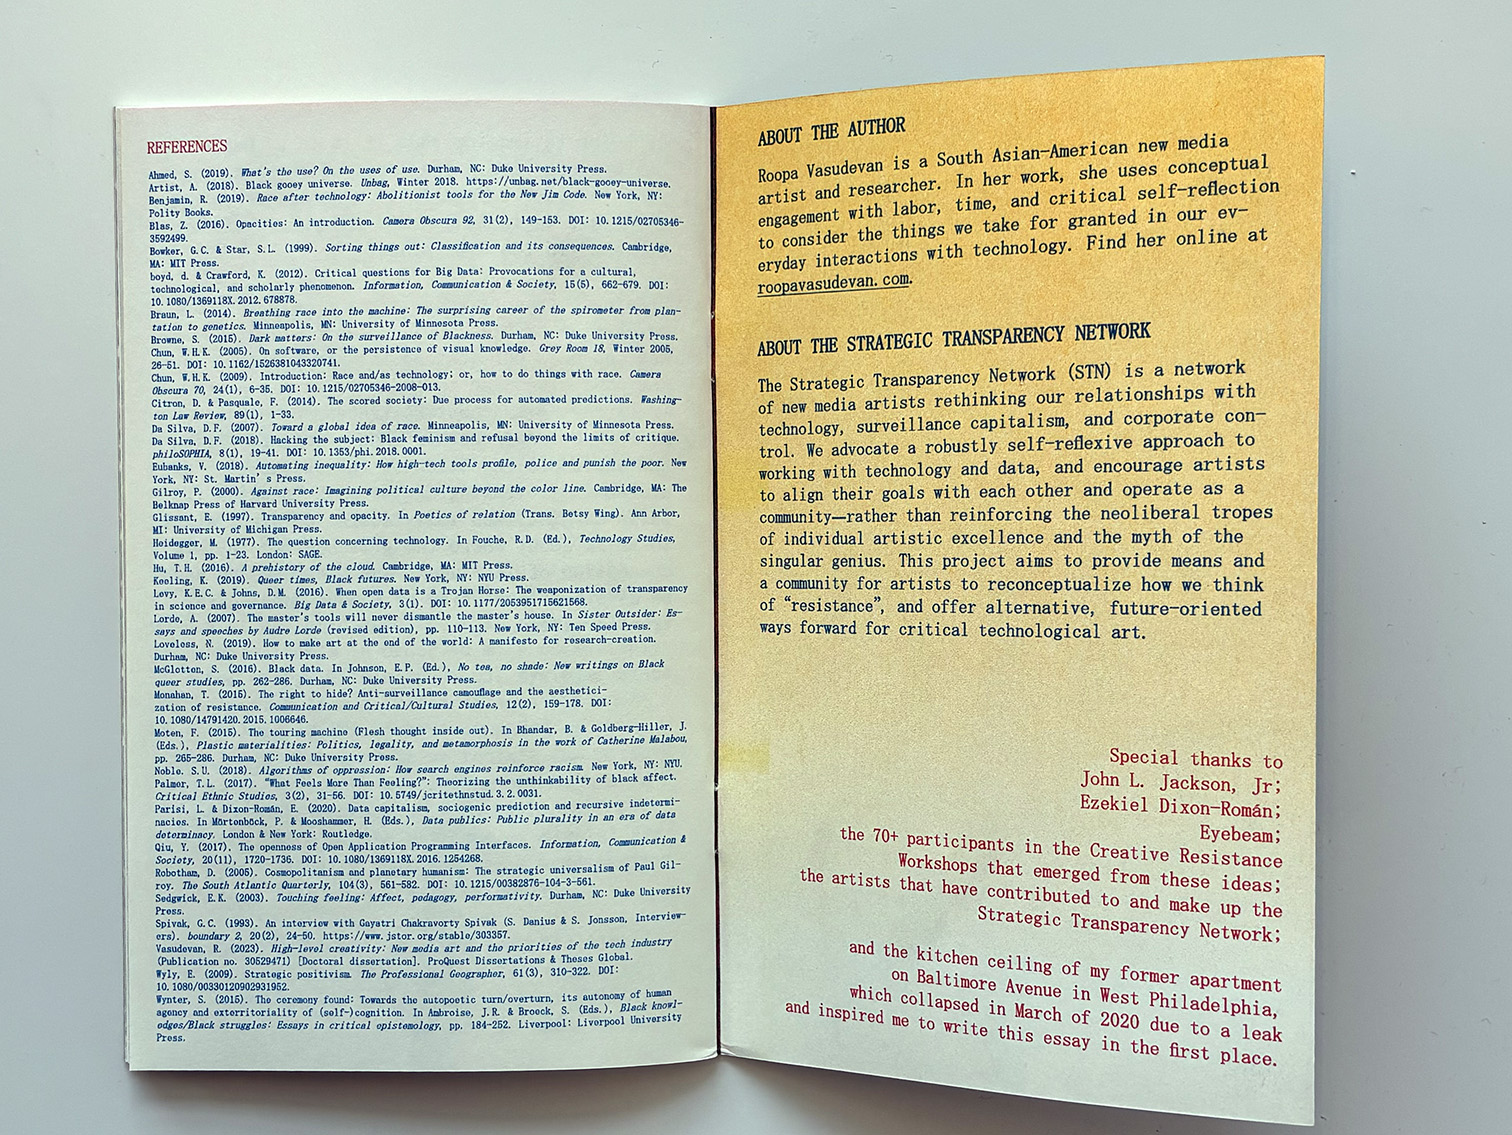 REFERENCES
Ahmed, S. (2019). What's the use? On the uses of use. Durham, NC: Duke University Press.
Artist, A. (2018). Black gooey universe. Unbag, Winter 2018. https://unbag.net/black-gooey-universe.
Benjamin, R. (2019). Race after technology: Abolitionist tools for the New Jim Code. New York, NY:
Polity Books.
Blas, Z. (2016). Opacities: An introduction. Camera Obscura 92, 31(2), 149-153. DOI: 10.1215/02705346-
3592499.
Bowker, G.C. & Star, S.L. (1999). Sorting things out: Classification and its consequences. Cambridge,
MA: MIT Press.
boyd, d. & Crawford, K. (2012). Critical questions for Big Data: Provocations for a cultural,
technological, and scholarly phenomenon. Information, Communication & Society, 15(5), 662-679. DOI:
10.1080/1369118X.2012.678878.
Braun, L. (2014). Breathing race into the machine: The surprising career of the spirometer from plan-
tation to genetics. Minneapolis, MN: University of Minnesota Press.
Browne, S. (2015). Dark matters: On the surveillance of Blackness. Durham, NC: Duke University Press.
Chun, W.H.K. (2005). On software, or the persistence of visual knowledge. Grey Room 18, Winter 2005,
26-51. DOI: 10.1162/1526381043320741.
Chun, W.H.K. (2009). Introduction: Race and/as technology; or, how to do things with race. Camera
Obscura 70, 24(1), 6-35. DOI: 10.1215/02705346-2008-013.
Citron, D. & Pasquale, F. (2014). The scored society: Due process for automated predictions. Washing-
ton Law Review, 89(1), 1-33.
Da Silva, D.F. (2007). Toward a global idea of race. Minneapolis, MN: University of Minnesota Press.
Da Silva, D.F. (2018). Hacking the subject: Black feminism and refusal beyond the limits of critique.
philoSOPHIA, 8(1), 19-41. DOI: 10.1353/phi.2018.0001.
Eubanks, V. (2018). Automating inequality: How high-tech tools profile, police and punish the poor. New
York, NY: St. Martin's Press.
Gilroy, P. (2000). Against race: Imagining political culture beyond the color line. Cambridge, MA: The
Belknap Press of Harvard University Press.
Glissant, E. (1997). Transparency and opacity. In Poetics of relation (Trans. Betsy Wing). Ann Arbor,
MI: University of Michigan Press.
Heidegger, M. (1977). The question concerning technology. In Fouche, R.D. (Ed.), Technology Studies,
Volume 1, pp. 1-23. London: SAGE.
Hu, T.H. (2016). A prehistory of the cloud. Cambridge, MA: MIT Press.
Keeling, K. (2019). Queer times, Black futures. New York, NY: NYU Press.
Levy, K.E.C. & Johns, D.M. (2016). When open data is a Trojan Horse: The weaponization of transparency
in science and governance. Big Data & Society, 3(1). DOI: 10.1177/2053951715621568.
Lorde, A. (2007). The master's tools will never dismantle the master's house. In Sister Outsider: Es-
says and speeches by Audre Lorde (revised edition), pp. 110-113. New York, NY: Ten Speed Press.
Loveless, N. (2019). How to make art at the end of the world: A manifesto for research-creation.
Durham, NC: Duke University Press.
McGlotten, S. (2016). Black data. In Johnson, E.P. (Ed.), No tea, no shade: New writings on Black
queer studies, pp. 262-286. Durham, NC: Duke University Press.
Monahan, T. (2015). The right to hide? Anti-surveillance camouflage and the aesthetici-
zation of resistance. Communication and Critical/Cultural Studies, 12(2), 159-178. DOI:
10.1080/14791420.2015.1006646.
Moten, F. (2015). The touring machine (Flesh thought inside out). In Bhandar, B. & Goldberg-Hiller, J.
(Eds.), Plastic materialities: Politics, legality, and metamorphosis in the work of Catherine Malabou,
pp. 265-286. Durham, NC: Duke University Press.
Noble, S.U. (2018). Algorithms of oppression: How search engines reinforce racism. New York, NY: NYU.
Palmer, T.L. (2017). "What Feels More Than Feeling?": Theorizing the unthinkability of black affect.
Critical Ethnic Studies, 3(2), 31-56. DOI: 10.5749/jcritethnstud.3.2.0031.
Parisi, L. & Dixon-Román, E. (2020). Data capitalism, sociogenic prediction and recursive indetermi-
nacies. In Mörtenböck, P. & Mooshammer, H. (Eds.), Data publics: Public plurality in an era of data
determinacy. London & New York: Routledge.
Qiu, Y. (2017). The openness of Open Application Programming Interfaces. Information, Communication &
Society, 20(11), 1720-1736. DOI: 10.1080/1369118X.2016.1254268.
Robotham, D. (2005). Cosmopolitanism and planetary humanism: The strategic universalism of Paul Gil-
roy. The South Atlantic Quarterly, 104(3), 561-582. DOI: 10.1215/00382876-104-3-561.
Sedgwick, E.K. (2003). Touching feeling: Affect, pedagogy, performativity. Durham, NC: Duke University
Press.
Spivak, G.C. (1993). An interview with Gayatri Chakravorty Spivak (S. Danius & S. Jonsson, Interview-
ers). boundary 2, 20(2), 24-50. https://www.jstor.org/stable/303357.
Vasudevan, R. (2023). High-level creativity: New media art and the priorities of the tech industry
(Publication no. 30529471) [Doctoral dissertation]. ProQuest Dissertations & Theses Global.
Wyly, E. (2009). Strategic positivism. The Professional Geographer, 61(3), 310-322. DOI:
10.1080/00330120902931952.
Wynter, S. (2015). The ceremony found: Towards the autopoetic turn/overturn, its autonomy of human
agency and exterritoriality of (self-)cognition. In Ambroise, J.R. & Broeck, S. (Eds.), Black knowl-
edges/Black struggles: Essays in critical epistemology, pp. 184-252. Liverpool: Liverpool University
Press.
ABOUT THE AUTHOR
Roopa Vasudevan is a South Asian-American new media
artist and researcher. In her work, she uses conceptual
engagement with labor, time, and critical self-reflection
to consider the things we take for granted in our ev-
eryday interactions with technology. Find her online at
roopavasudevan.com.
ABOUT THE STRATEGIC TRANSPARENCY NETWORK
The Strategic Transparency Network (STN) is a network
of new media artists rethinking our relationships with
technology, surveillance capitalism, and corporate con-
trol. We advocate a robustly self-reflexive approach to
working with technology and data, and encourage artists
to align their goals with each other and operate as a
community—rather than reinforcing the neoliberal tropes
of individual artistic excellence and the myth of the
singular genius. This project aims to provide means and
a community for artists to reconceptualize how we think
of “resistance”, and offer alternative, future-oriented
ways forward for critical technological art.
Special thanks to
John L. Jackson, Jr;
Ezekiel Dixon-Román;
Eyebeam;
the 70+ participants in the Creative Resistance
Workshops that emerged from these ideas;
the artists that have contributed to and make up the
Strategic Transparency Network;
and the kitchen ceiling of my former apartment
on Baltimore Avenue in West Philadelphia,
which collapsed in March of 2020 due to a leak
and inspired me to write this essay in the first place.